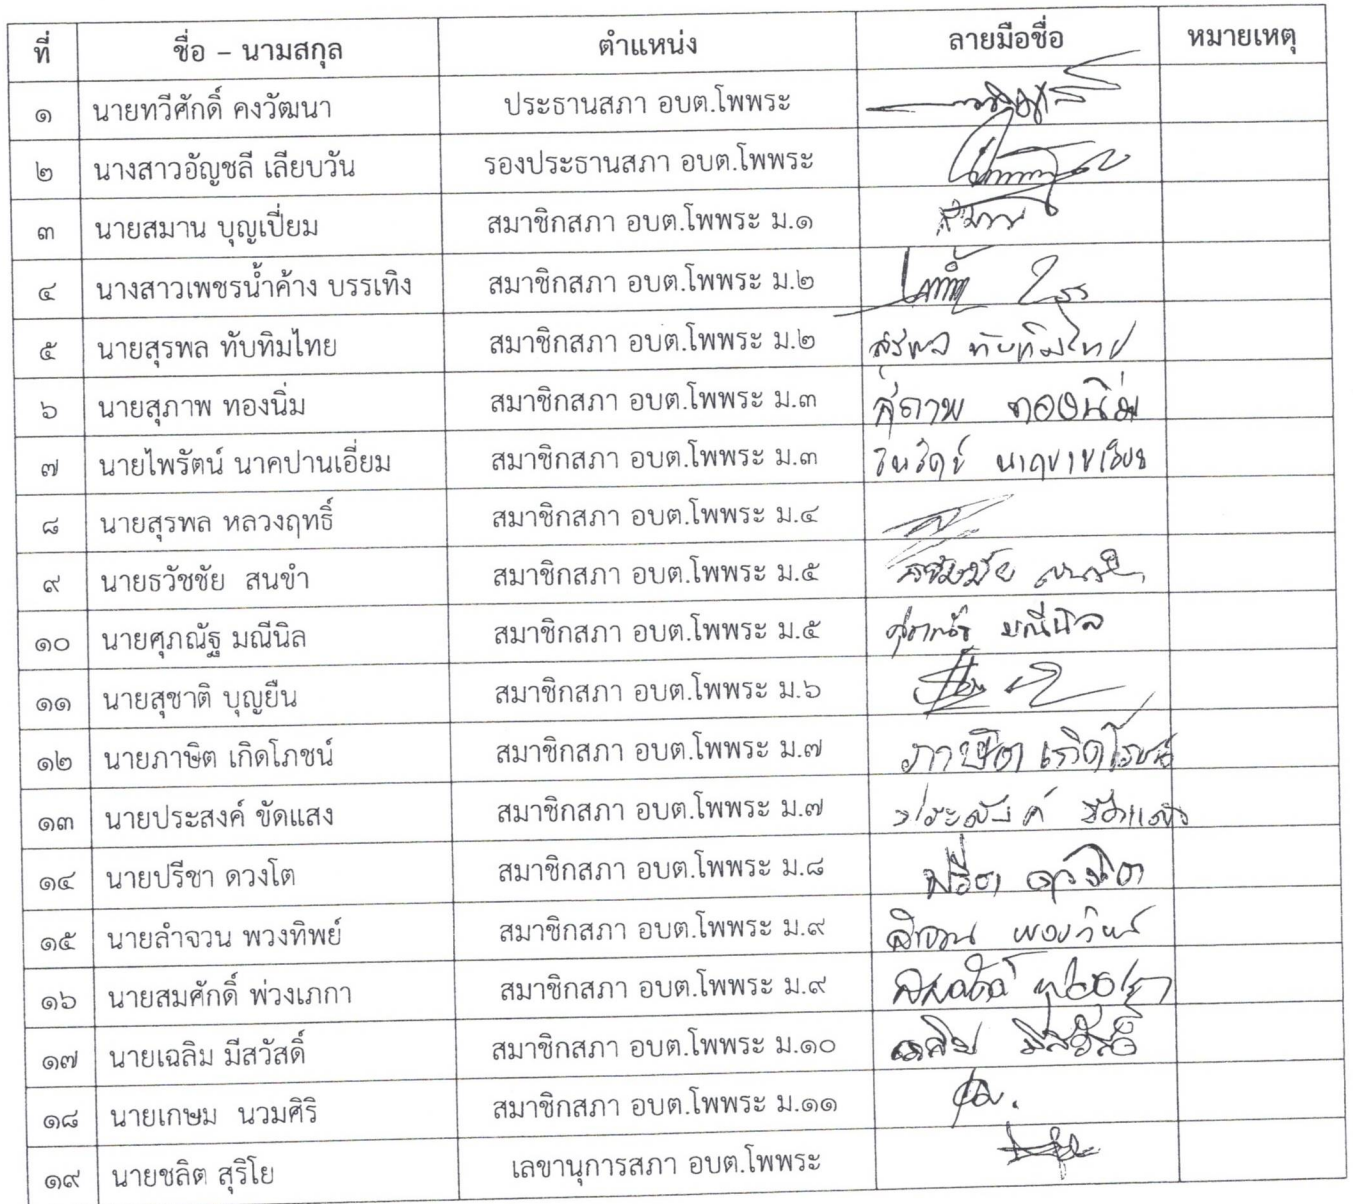 ที่ ชื่อ – นามสกุล ตำแหน่ง ลายมือชื่อ หมายเหตุ
๑ นายทวีศักดิ์ คงวัฒนา ประธานสภา อบต.โพพระ
๒ นางสาวอัญชลี เลียบวัน รองประธานสภา อบต.โพพระ
๓ นายสมาน บุญเปี่ยม สมาชิกสภา อบต.โพพระ ม.๑ สมาน
๔ นางสาวเพชรน้ำค้าง บรรเทิง สมาชิกสภา อบต.โพพระ ม.๒
๕ นายสุรพล ทับทิมไทย สมาชิกสภา อบต.โพพระ ม.๒ สุรพล ทับทิมไทย
๖ นายสุภาพ ทองนิ่ม สมาชิกสภา อบต.โพพระ ม.๓ สุภาพ ทองนิ่ม
๗ นายไพรัตน์ นาคปานเอี่ยม สมาชิกสภา อบต.โพพระ ม.๓
๘ นายสุรพล หลวงฤทธิ์ สมาชิกสภา อบต.โพพระ ม.๔
๙ นายธวัชชัย สนขำ สมาชิกสภา อบต.โพพระ ม.๕
๑๐ นายศุภณัฐ มณีนิล สมาชิกสภา อบต.โพพระ ม.๕ ศุภณัฐ มณีนิล
๑๑ นายสุชาติ บุญยืน สมาชิกสภา อบต.โพพระ ม.๖
๑๒ นายภาษิต เกิดโภชน์ สมาชิกสภา อบต.โพพระ ม.๗ ภาษิต เกิดโภชน์
๑๓ นายประสงค์ ขัดแสง สมาชิกสภา อบต.โพพระ ม.๗ ประสงค์ ขัดแสง
๑๔ นายปรีชา ดวงโต สมาชิกสภา อบต.โพพระ ม.๘ ปรีชา ดวงโต
๑๕ นายลำจวน พวงทิพย์ สมาชิกสภา อบต.โพพระ ม.๙ ลำจวน พวงทิพย์
๑๖ นายสมศักดิ์ พ่วงเภกา สมาชิกสภา อบต.โพพระ ม.๙
๑๗ นายเฉลิม มีสวัสดิ์ สมาชิกสภา อบต.โพพระ ม.๑๐ เฉลิม มีสวัสดิ์
๑๘ นายเกษม นวมศิริ สมาชิกสภา อบต.โพพระ ม.๑๑
๑๙ นายชลิต สุริโย เลขานุการสภา อบต.โพพระ